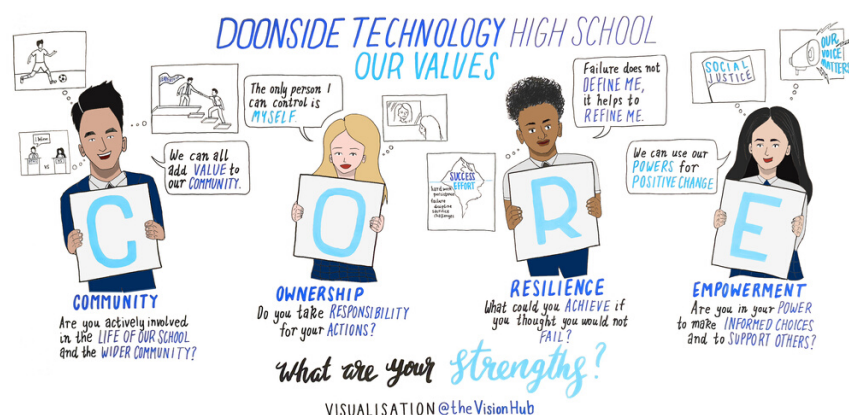 DOONSIDE TECHNOLOGY HIGH SCHOOL
OUR VALUES
We can all
add VALUE to
our COMMUNITY.
C
COMMUNITY
Are you actively involved
in the LIFE OF OUR SCHOOL
and the WIDER COMMUNITY?
The only person I
can control is
MYSELF.
O
OWNERSHIP
Do you take RESPONSIBILITY
for your ACTIONS?
SUCCESS
EFFORT
hard work
persistence
failure
discipline
sacrifice
challenges
Failure does not
DEFINE ME,
it helps to
REFINE ME.
R
RESILIENCE
What could you ACHIEVE if
you thought you would not
FAIL?
SOCIAL
JUSTICE
OUR
VOICE
MATTERS
We can use our
POWERS for
POSITIVE CHANGE
E
EMPOWERMENT
Are you in your POWER
to make INFORMED CHOICES
and to SUPPORT OTHERS?
What are your strengths?
VISUALISATION @theVisionHub